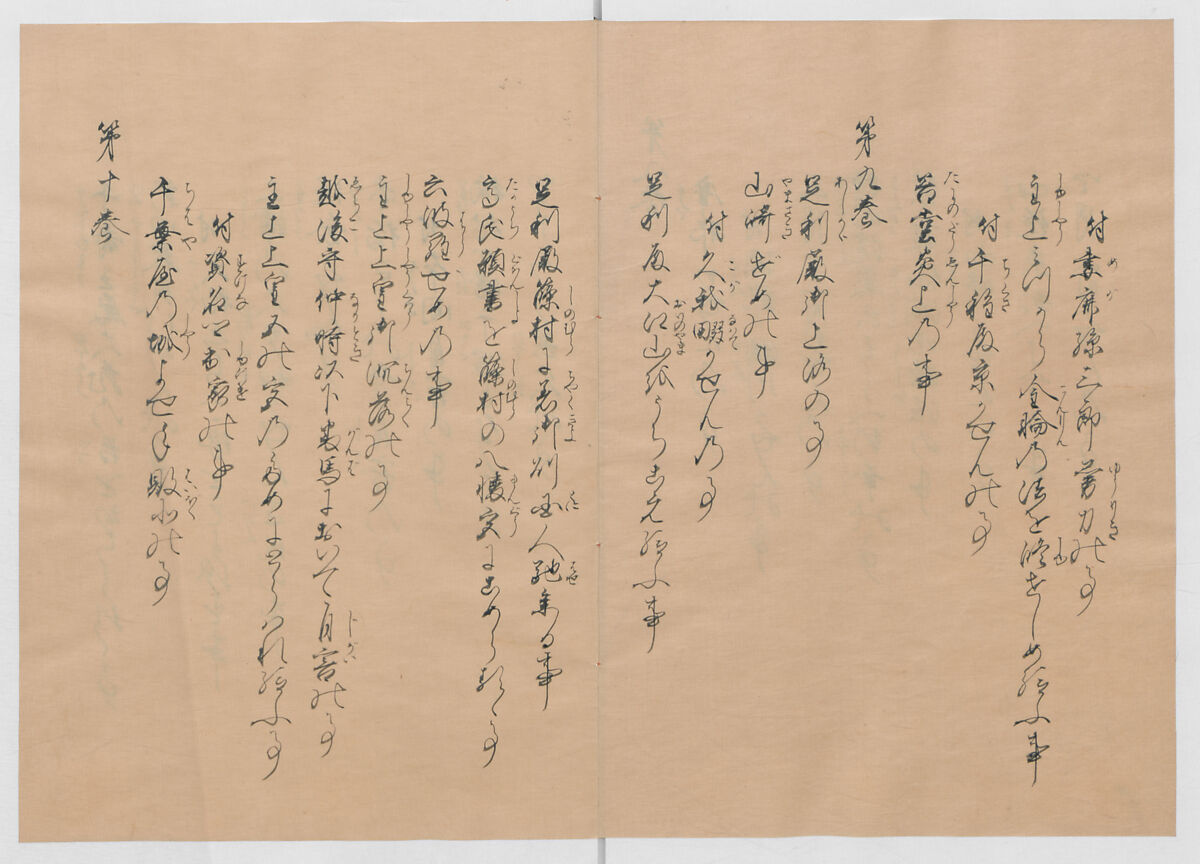 付妻鹿孫三郎勇力の事
主上みづから金輪の法を修せしめ給ふ事
付千種殿京かせんの事
谷堂炎上の事
第九巻
足利殿御上洛の事
山崎ぜめの事
付久我畷かせんの事
足利殿大江山をうちこえ給ふ事
足利殿篠村に着御則国人馳参る事
高氏願書を篠村の八幡宮にこめらるゝ事
六波羅せめの事
主上上皇御沈落の事
越後守仲時以下番馬において自害の事
主上上皇五の宮のためにとらはれ給ふ事
付資名卿出家の事
千葉屋の城よせ手敗北の事
第十巻